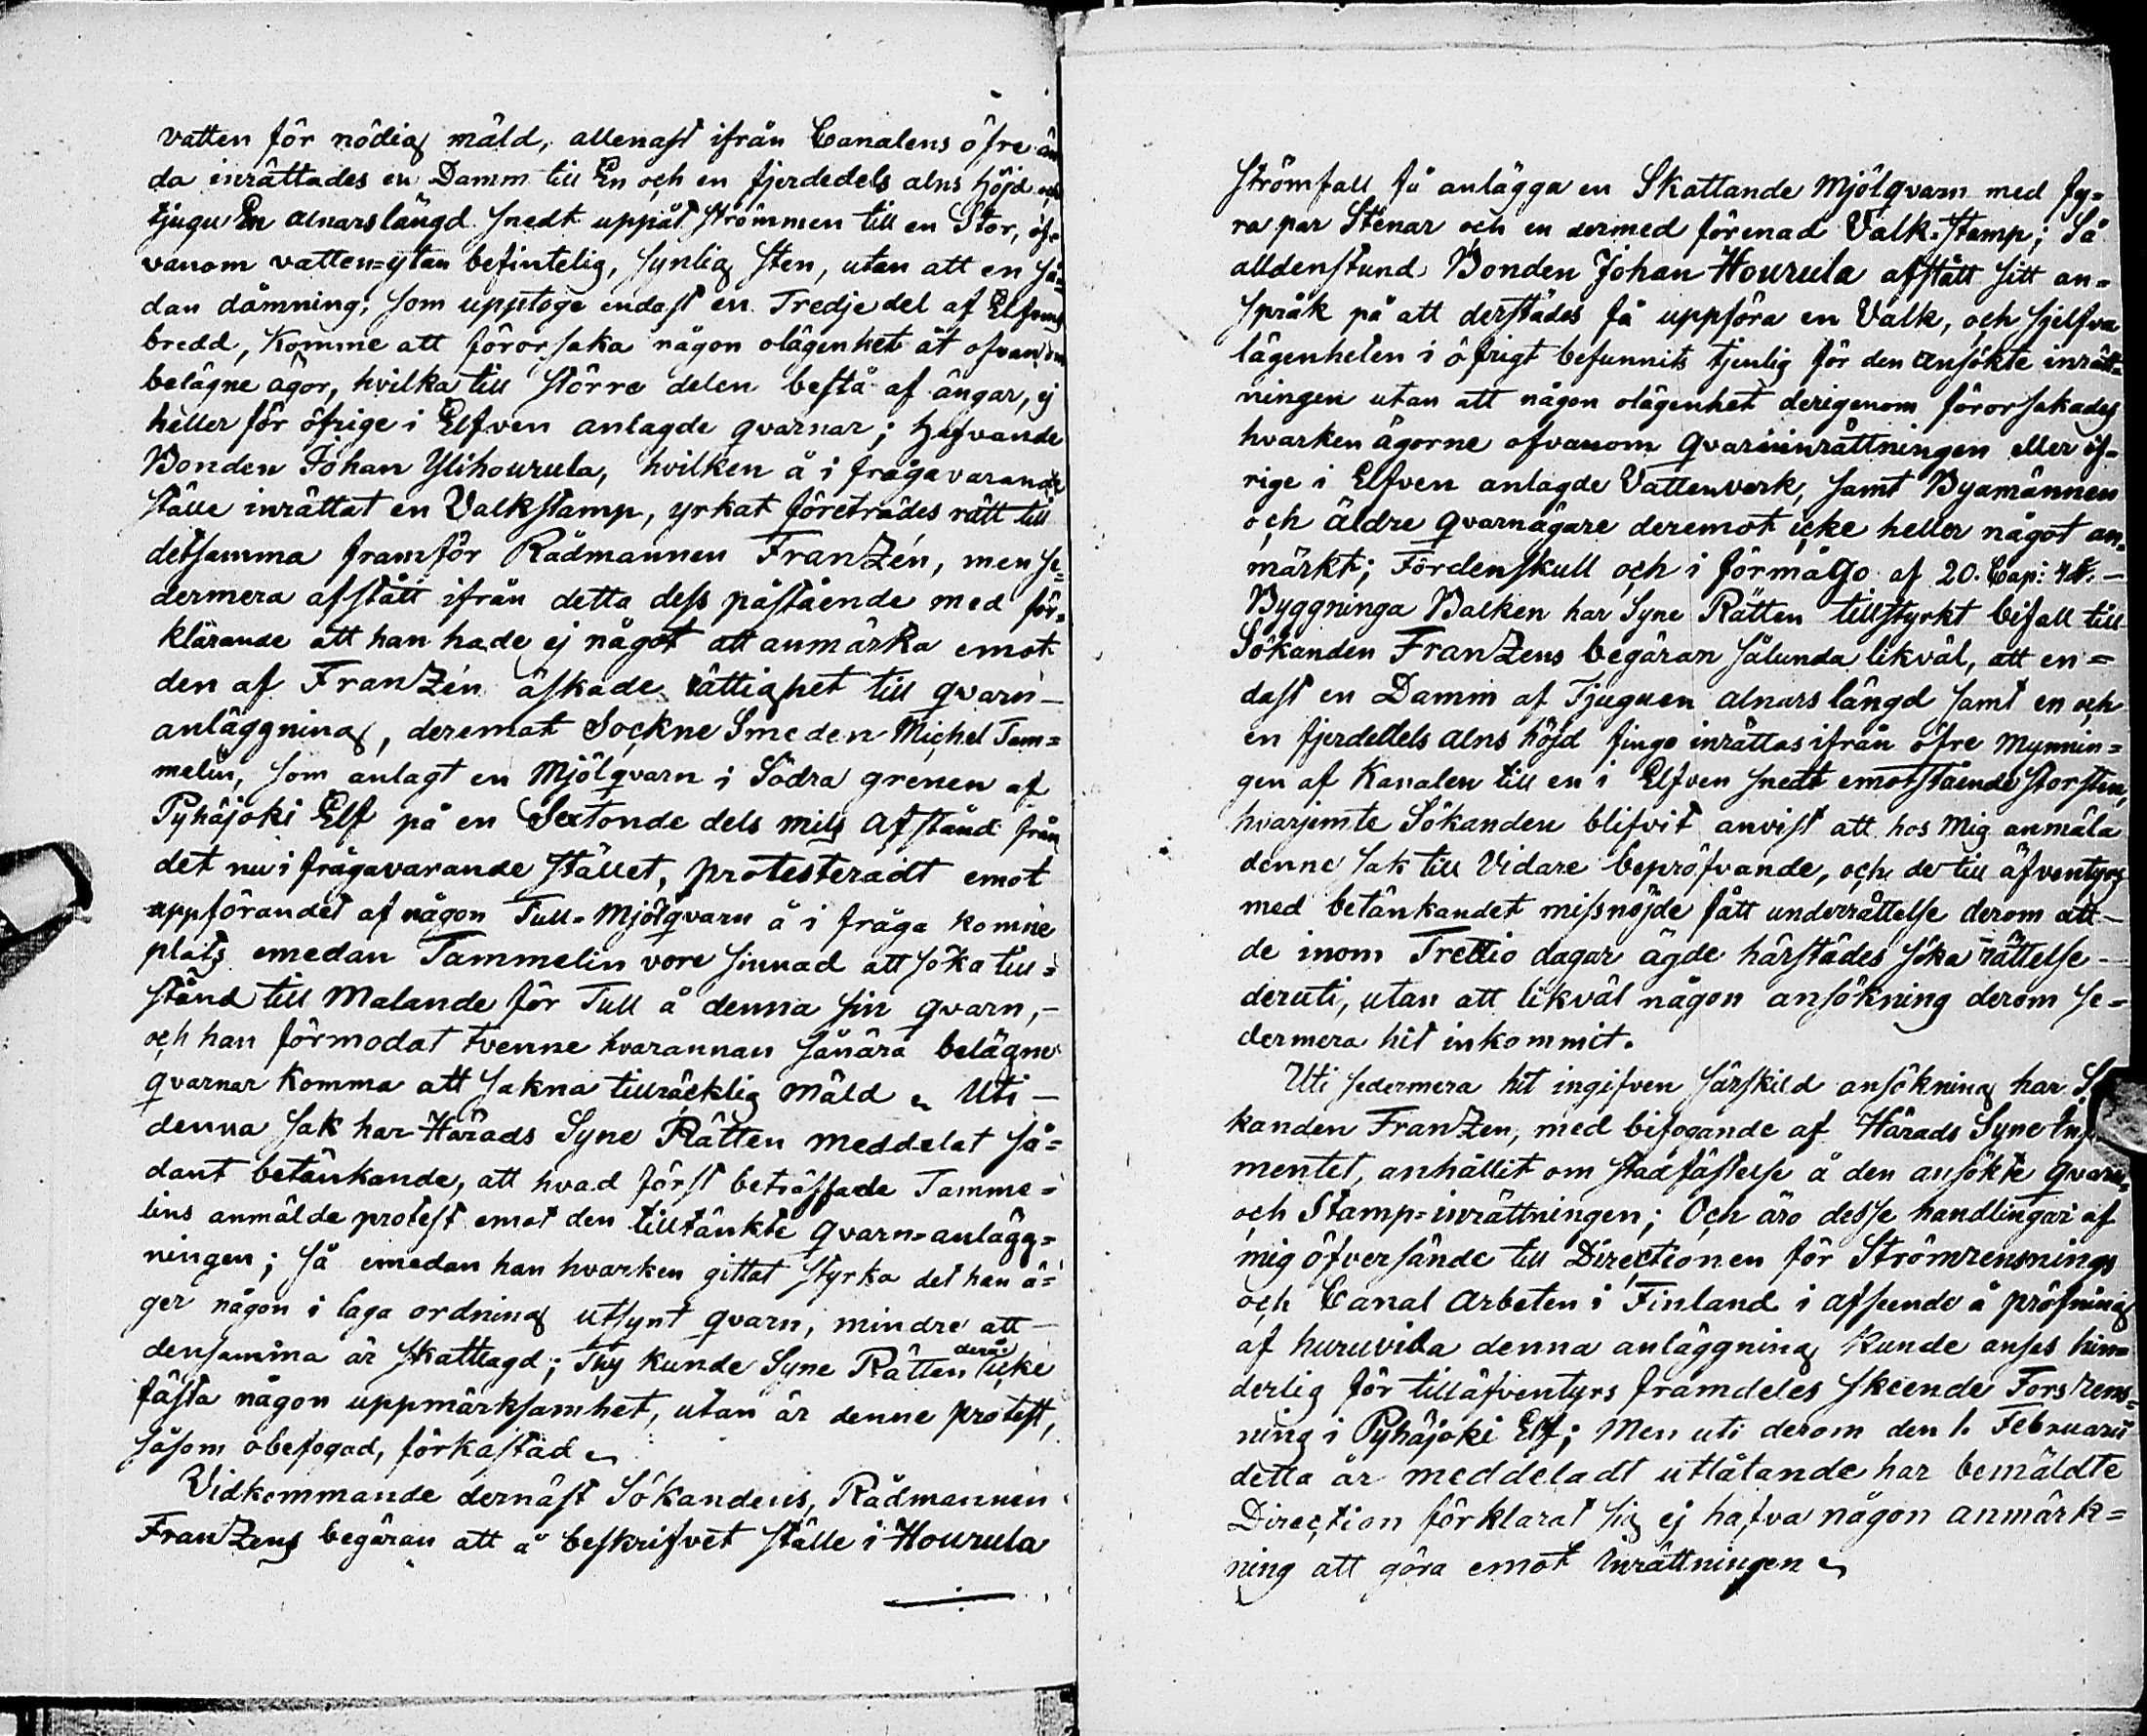 vatten för nödig mäld, allenast ifrån Canalens öfre än
da inrättades en Damm till En och en fjerdedels alns höjd och
tjugu En alnars längd snedt uppåt strömmen till en Stor, of-
vanom vatten=ytan befintelig, synlig sten, utan att en så=
dan dämning, som upptoge endast en Tredjedel af Elfvens
bredd, Komme att förorsaka någon olägenhet åt ofvanom
belägne ägor, hvilka till större delen bestå af ängar, ej
heller för öfrige i Elfven anlagde qvarnar; Hafvande
Bonden Johan Ylihourula, hvilken å i frågavarande
ställe inrättat en Valkstamp, yrkat företrädes rätt till
detsamma framför Rådmannen FranZén, men se=
dermera afstått ifrån detta dess påstående med för=
klarande att han hade ej något att anmärka emot
den af FranZén äskade rättighet till qvarn-
anläggning, deremot Sockne Smeden Michel Tam=
melin, som anlagt en Mjölqvarn i Södra grenen af
Pyhäjoki Elf på en Sextonde dels mils Afstånd från
det nu i frågavarande stället, protesteradt emot
uppförandet af någon Tull-Mjölqvarn å i fråga komne
plats emedan Tammelin vore sinnad att söka till=
stånd till Malande för Tull å denna sin qvarn,-
och han förmodat tvenne hvarannan sånära belägne
qvarnar Komma att sakna tillräcklig mäld. Uti-
denna sak har Härads Syne Rätten meddelat så=
dant betänkande, att hvad först beträffade Tamme=
lins anmälde protest emot den tilltänkte qvarn=anlägg=
ningen; så emedan han hvarken gittat styrka det han ä=
ger någon i laga ordning utsynt qvarn, mindre att-
densamma är skattlagd; Thy kunde Syne Rätten derå icke
fästa någon uppmärksamhet, utan är denne protest,
såsom obefogad, förkastad.
Vidkommande dernäst Sökandens, Rådmannen
FranZens begäran att å beskrifvet ställe i Hourula
Strömfall få anlägga en Skattlande Mjölqvarn med fy=
ra par Stenar och en dermed förenad Valk-Stamp; Så
alldenstund Bonden Johan Hourula afstått sitt an=
språk på att derstädes få uppföra en Valk, och sjelfva
lägenheten i öfrigt befunnits tjenlig för den Ansökte inrätt=
ningen utan att någon olägenhet derigenom förorsakades
hvarken ägorne ofvanom qvarninrättningen eller öf-
rige i Elfven anlagde Vattenverk, samt Byamännen
och äldre qvarnägare deremot icke heller något an=
märkt; Fördenskull och i förmågo af 20. Cap: 4 §.-
Byggninga Balken har Syne Rätten tillstyrkt bifall till
Sökanden FranZens begäran sålunda likväl, att en=
dast en Damm af Tjuguen alnars längd samt en och
en fjerdedels alns höjd finge inrättas ifrån öfre mynnin=
gen af Kanalen till en i Elfven snedt emotstående storsten,
hvarjemte Sökanden blifvit anvist att hos Mig anmäla
denne sak till Vidare bepröfvande, och de till äfventyrs
med betänkandet missnöjde fått underrättelse derom att-
de inom Trettio dagar ägde härstädes söka rättelse-
deruti, utan att likväl någon ansökning derom se=
dermera hit inkommit.
Uti sedermera hit ingifven särskild ansökning har Sö
kanden FranZen, med bifogande af Härads Syne Inst
mentet, anhållit om stadfästelse å den ansökte qvarn=
och Stamp=inrättningen; Och äro desse handlingar af
mig öfversände till Directionen för Strömrensnings
och Canal Arbeten i Finland i afseende å pröfning
af huruvida denna anläggning kunde anses hin=
derlig för tilläfventyrs framdeles skeende Forsrens=
ning i Pyhäjoki Elf; Men uti derom den 1. Februarii
detta år meddeladt utlåtande har bemäldte
Direction förklarat sig ej hafva någon anmärk=
ning att göra emot Inrättningen.